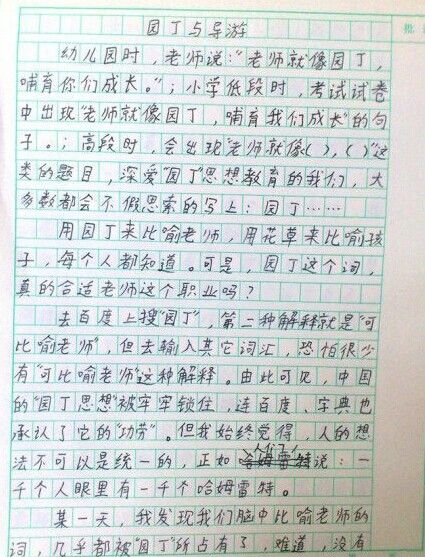 园丁与导游
幼儿园时，老师说：“老师就像园丁，
哺育你们成长。”；小学低段时，考试试卷
中出现“老师就像园丁，哺育我们成长”的句
子。；高段时，会出现“老师就像( )，( )”这
类的题目，深爱“园丁”思想教育的我们，大
多数都会不假思索的写上：园丁……
用园丁来比喻老师，用花草来比喻孩
子，每个人都知道。可是，园丁这个词，
真的合适老师这个职业吗？
去百度上搜“园丁”，第二种解释就是“可
比喻老师”，但去输入其它词汇，恐怕很少
有“可比喻老师”这种解释。由此可见，中国
的“园丁思想”被牢牢锁住，连百度、字典也
承认了它的“功劳”。但我始终觉得，人的想
法不可以是统一的，正如人们说：一
千个人眼里有一千个哈姆雷特。
某一天，我发现我们脑中比喻老师的
词，几乎都被“园丁”所占有了，难道，没有
批